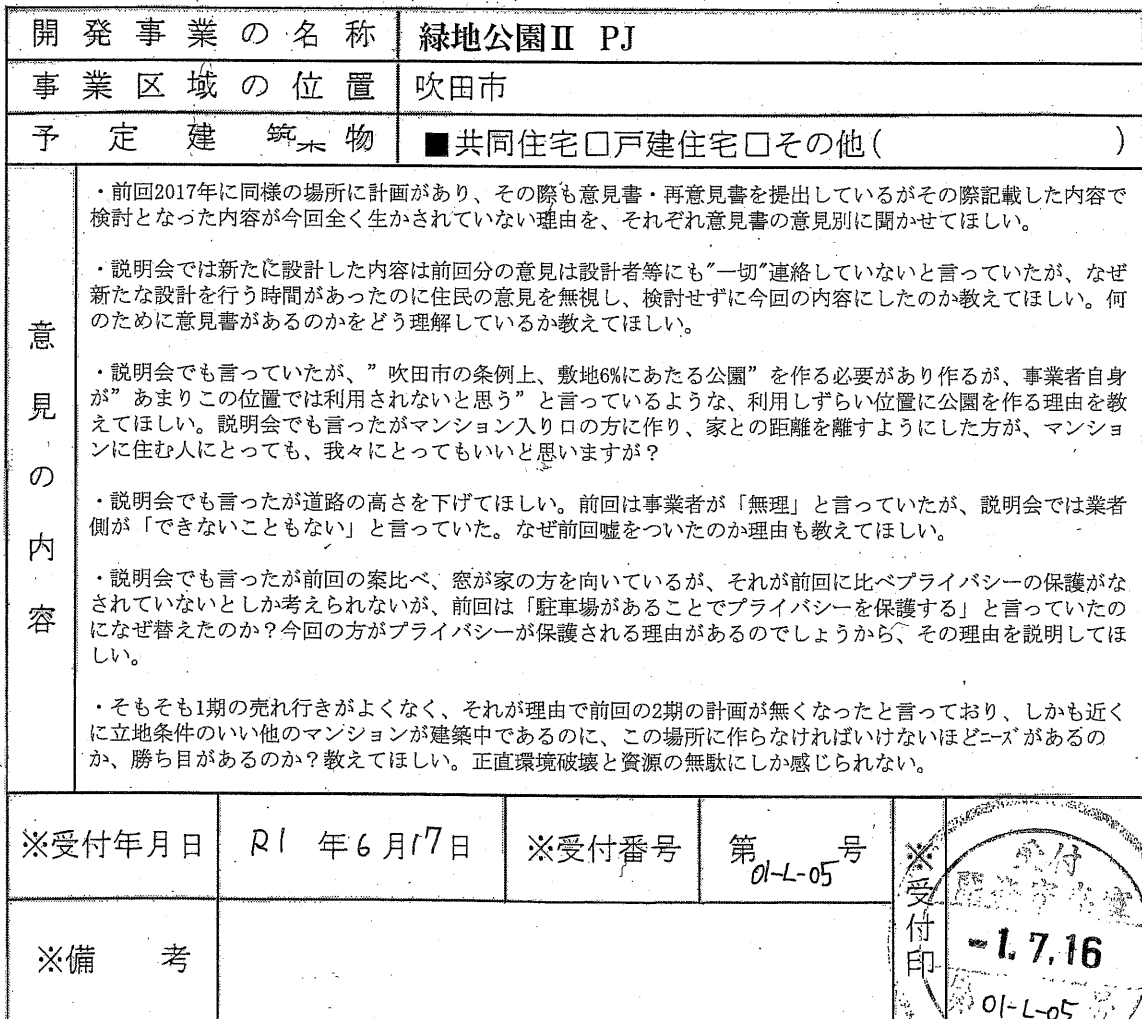 開発事業の名称 緑地公園Ⅱ PJ
事業区域の位置 吹田市
予定建築物 ■共同住宅□戸建住宅□その他( )
意見の内容
・前回2017年に同様の場所に計画があり、その際も意見書・再意見書を提出しているがその際記載した内容で
検討となった内容が今回全く生かされていない理由を、それぞれ意見書の意見別に聞かせてほしい。
・説明会では新たに設計した内容は前回分の意見は設計者等にも"一切"連絡していないと言っていたが、なぜ
新たな設計を行う時間があったのに住民の意見を無視し、検討せずに今回の内容にしたのか教えてほしい。何
のために意見書があるのかをどう理解しているか教えてほしい。
・説明会でも言っていたが、”吹田市の条例上、敷地6%にあたる公園”を作る必要があり作るが、事業者自身
が”あまりこの位置では利用されないと思う”と言っているような、利用しずらい位置に公園を作る理由を教
えてほしい。説明会でも言ったがマンション入り口の方に作り、家との距離を離すようにした方が、マンショ
ンに住む人にとっても、我々にとってもいいと思いますが？
・説明会でも言ったが道路の高さを下げてほしい。前回は事業者が「無理」と言っていたが、説明会では業者
側が「できないこともない」と言っていた。なぜ前回嘘をついたのか理由も教えてほしい。
・説明会でも言ったが前回の案比べ、窓が家の方を向いているが、それが前回に比べプライバシーの保護がな
されていないとしか考えられないが、前回は「駐車場があることでプライバシーを保護する」と言っていたの
になぜ替えたのか？今回の方がプライバシーが保護される理由があるのでしょうから、その理由を説明してほ
しい。
・そもそも1期の売れ行きがよくなく、それが理由で前回の2期の計画が無くなったと言っており、しかも近く
に立地条件のいい他のマンションが建築中であるのに、この場所に作らなければいけないほどニーズがあるの
か、勝ち目があるのか？教えてほしい。正直環境破壊と資源の無駄にしか感じられない。
※受付年月日 R1 年6月17日 ※受付番号 第01-L-05号
※受付印
受付
-1.7.16
01-L-05
※備考